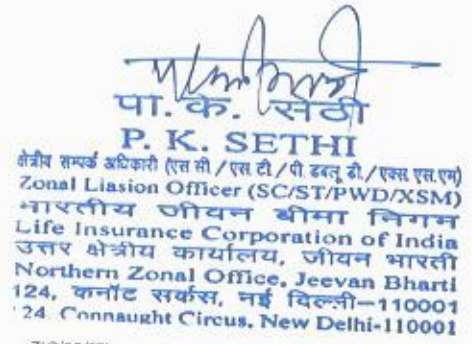 पा. के. सेठी
P. K. SETHI
क्षेत्रीय सम्पर्क अधिकारी (एस सी/एस टी/पी डब्लू डी/एक्स एस एम)
Zonal Liasion Officer (SC/ST/PWD/XSM)
भारतीय जीवन बीमा निगम
Life Insurance Corporation of India
उत्तर क्षेत्रीय कार्यालय, जीवन भारती
Northern Zonal Office, Jeevan Bharti
124, कनॉट सर्कस, नई दिल्ली-110001
124 Connaught Circus, New Delhi-110001